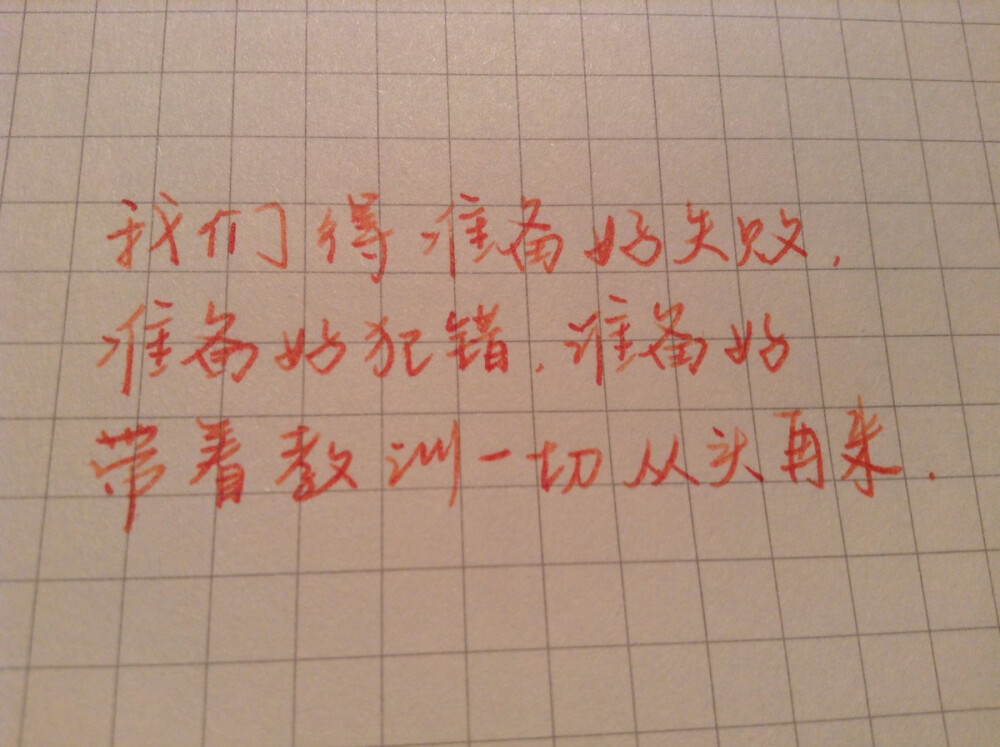 我们得准备好失败,
准备好犯错,准备好
带着教训一切从头再来.